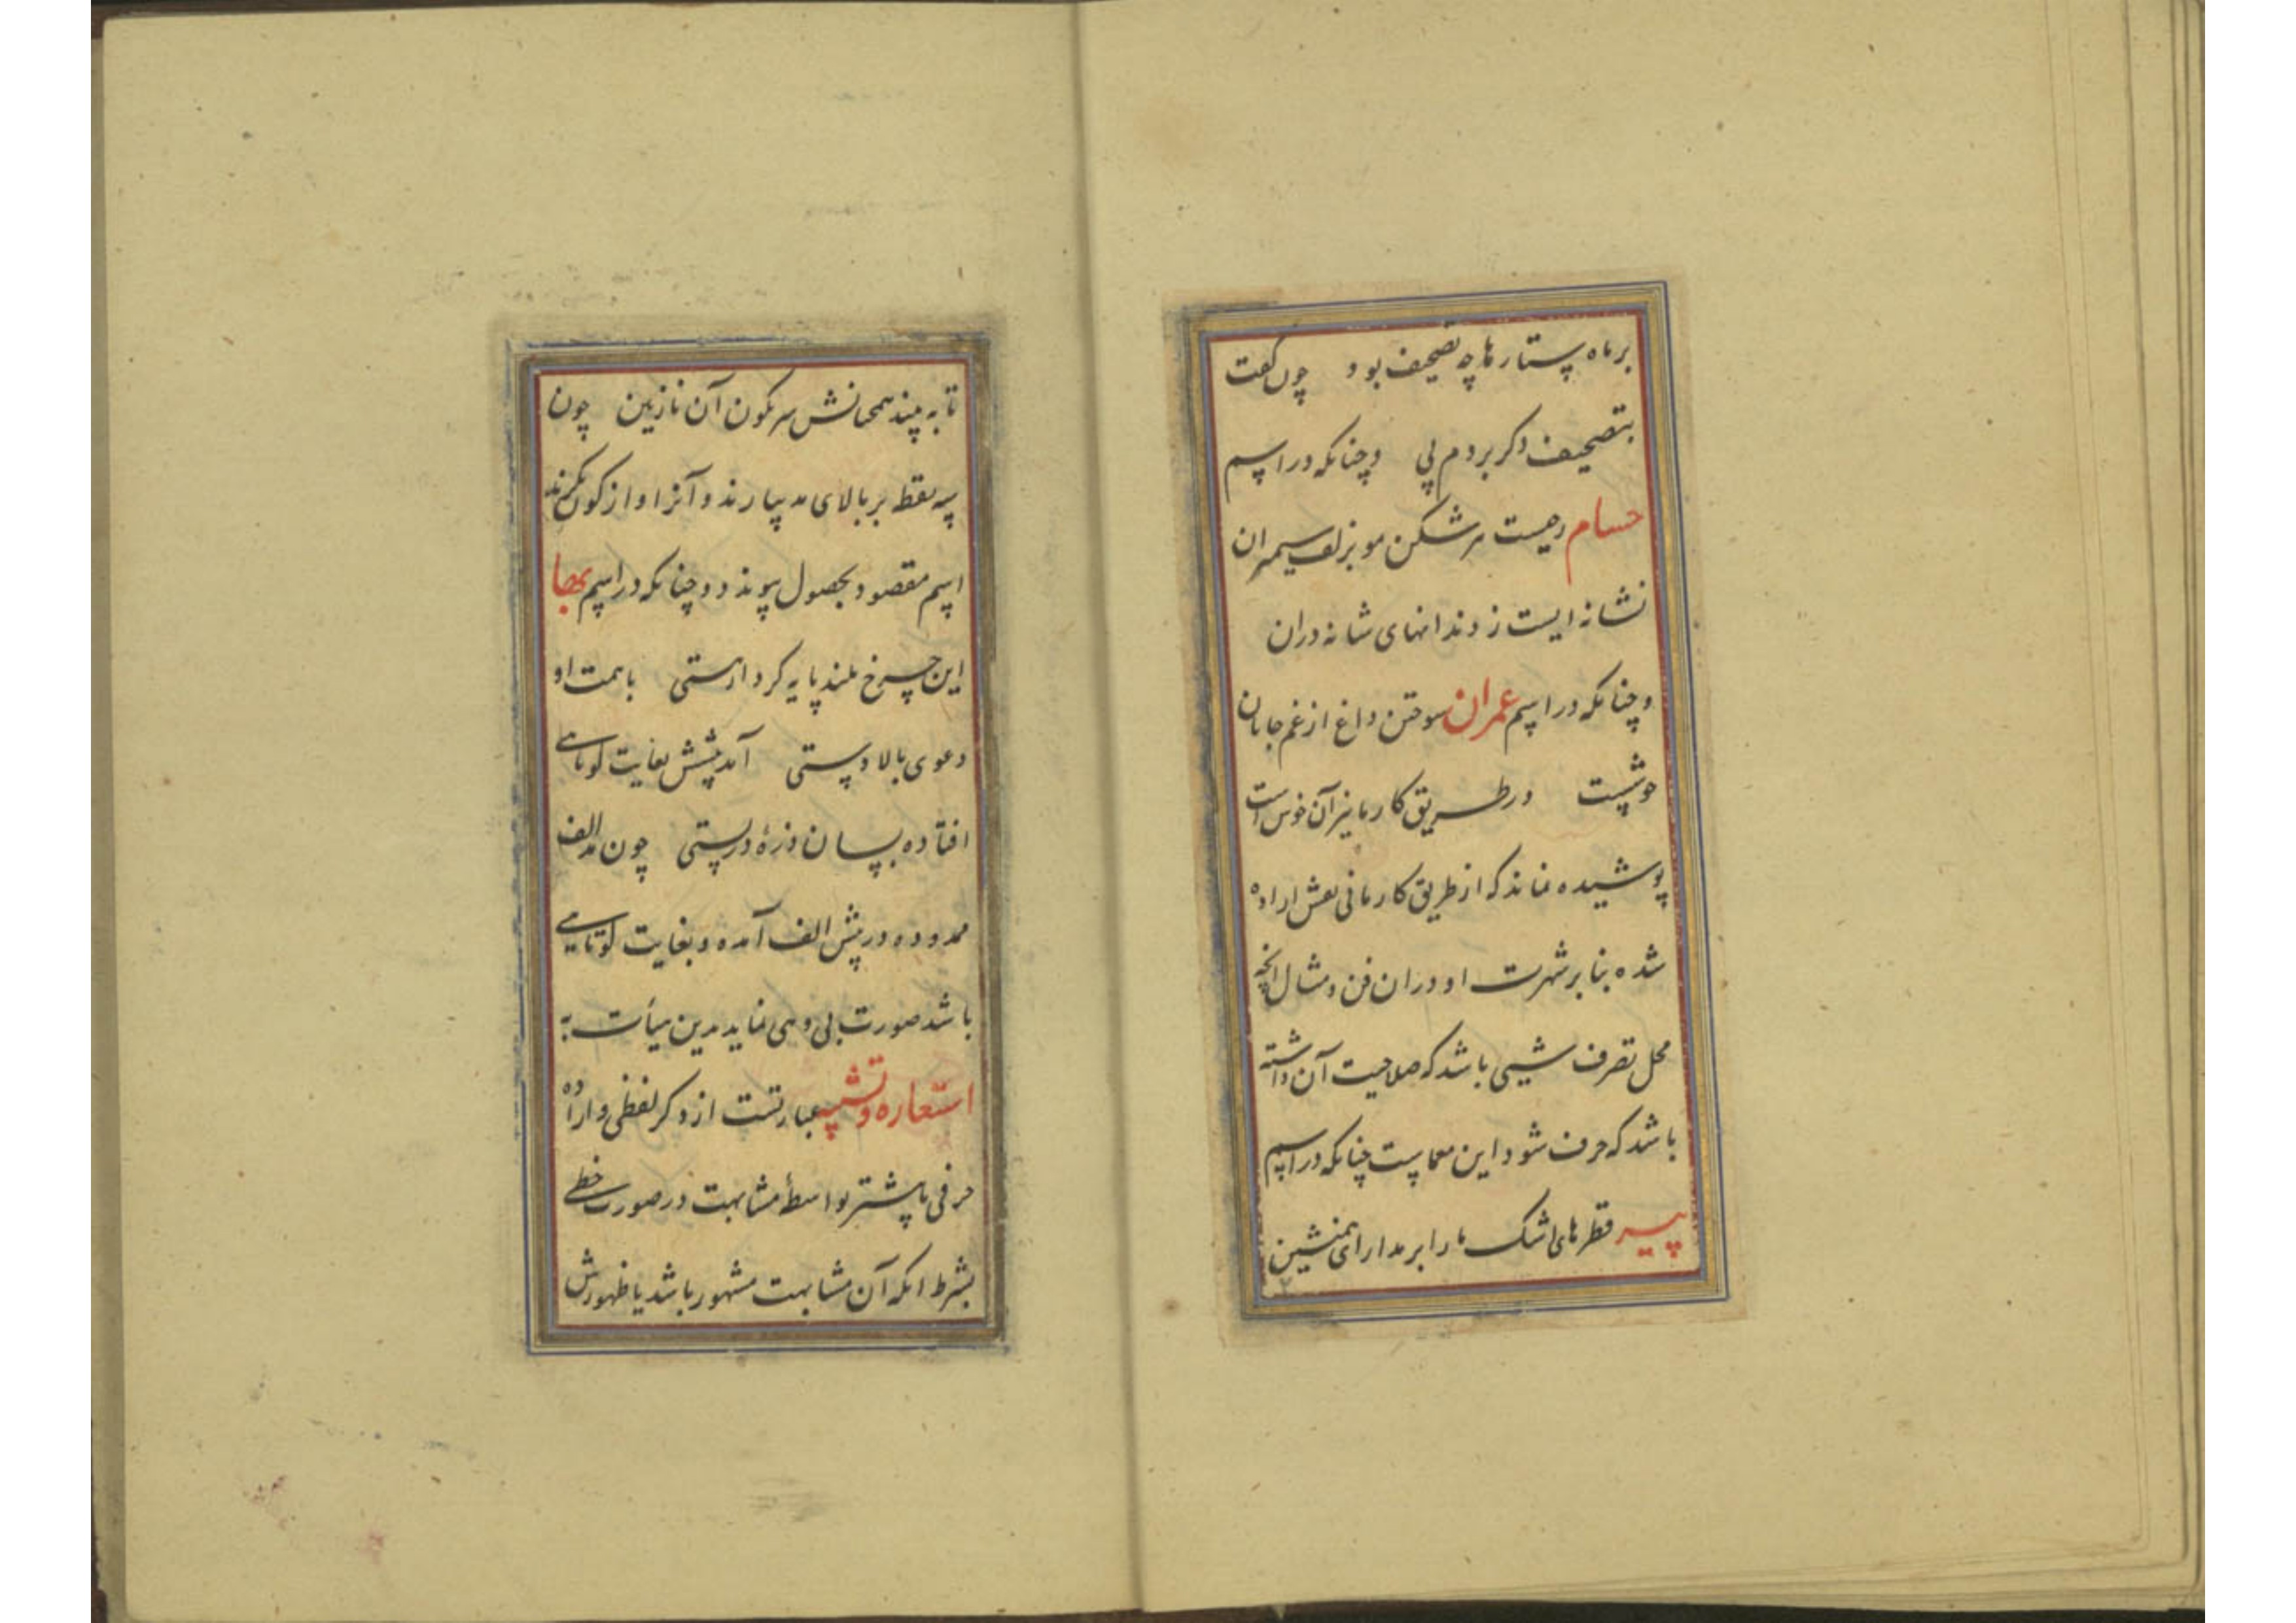 بر ماه ستارها چه تصحیف بود چون گفت
بتصحیف ذکر بردم پی وچنانکه در اسم
حسام رهیست پرشکن مو بزلف سیمبران
نشانه ایست ز دندانهای شانه دران
وچنانکه در اسم عمران سوختن داغ از غم جانان
خوشست در طریق کار مانیز آن خوش است
پوشیده نماند که از طریق کار مانی نقش اراده
شده بنابر شهرت او دران فن ومثال انچه
محل تصرف شیئی باشد که صلاحیت آن داشته
باشد که حرف شود این معماست چنانکه در اسم
پیر قطرهای اشک ما را بر مدار ای همنشین
تا به بیند همچنانش سرنکون آن نازنین چون
سه نقطه بر بالای مد بیارند و آنرا واژکون کنند
اسم مقصود بحصول پیوندد وچنانکه در اسم
این چرخ بلند پایه کرد از هستی با همت او
دعوی بالا دستی آمد پیشش بغایت کوتاهی
افتاده بسان ذرهٔ در پستی چون مد الف
ممدوده در پیش الف آمده و بغایت کوتاهی
باشد صورت بی وهی نماید بدین هیأت به
استعاره وتشبیه عبارتست از ذکر لفظی و اراده
حرفی یا بیشتر بواسطهٔ مشابهت در صورت خطی
بشرط انکه آن مشابهت مشهور باشد یا ظهورش